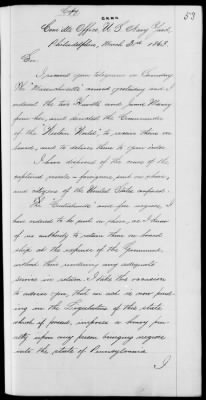 Copy
53
Com'dts Office, U. S. Navy Yard,
Philadelphia, March 30th 1863.
Sir,
I received your telegram on Thursday
The "Massachusetts" arrived yesterday and I
ordered the two
from her, and directed the Commander
of the "Western World" to receive them on
board, and to deliver them to your order.
I have disposed of the crews of the
captured vessels - foreigners, put on shore,
and citizens of the United States confined.
The and five negroes, I
have ordered to be put on shore, as I know
of no authority to retain them on board
ship at the expense of the Government,
without their rendering any adequate
service in return. I take this occasion
to advise you, that an act is now pend-
ing in the Legislature of this State
which if passed, imposes a heavy pen-
alty upon any person bringing negroes
into the State of Pennsylvania.
I